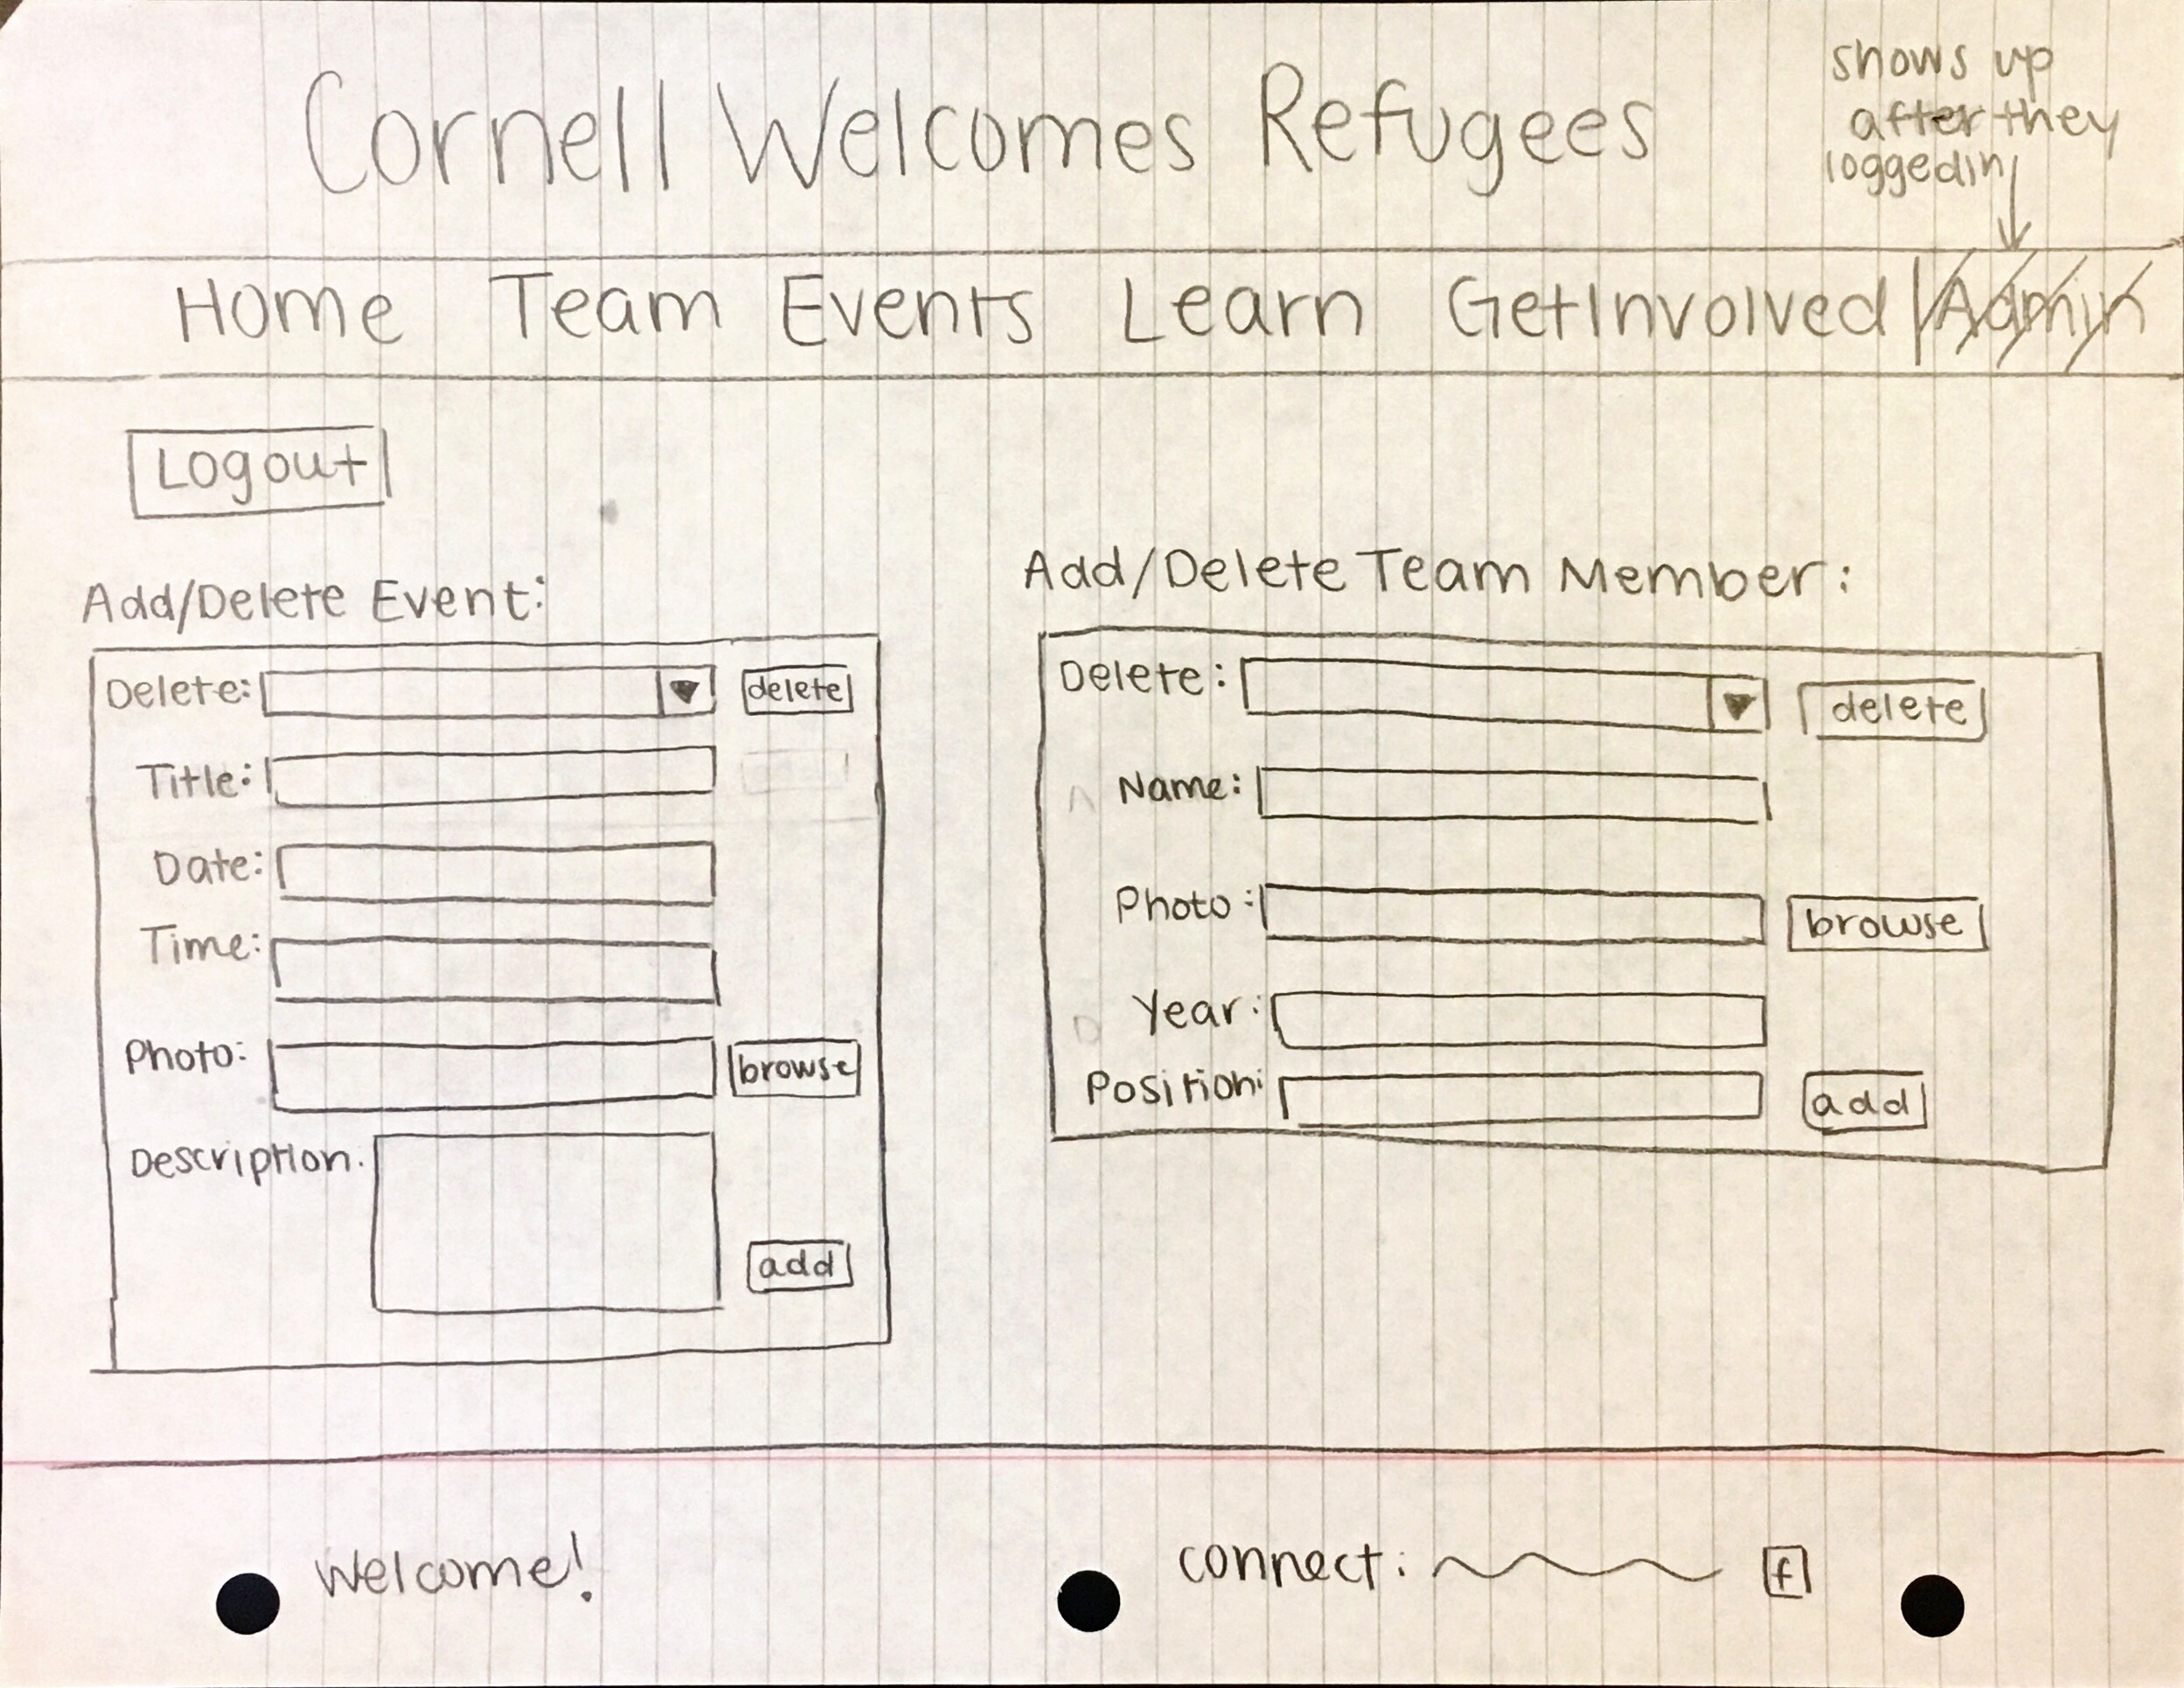 Cornell Welcomes Refugees
shows up
after they
loggedin
Home Team Events Learn GetInvolved Admin
Logout
Add/Delete Event:
Delete: delete
Title:
Date:
Time:
Photo: browse
Description:
add
Add/Delete Team Member:
Delete: delete
Name:
Photo: browse
Year:
Position: add
Welcome!
connect: f